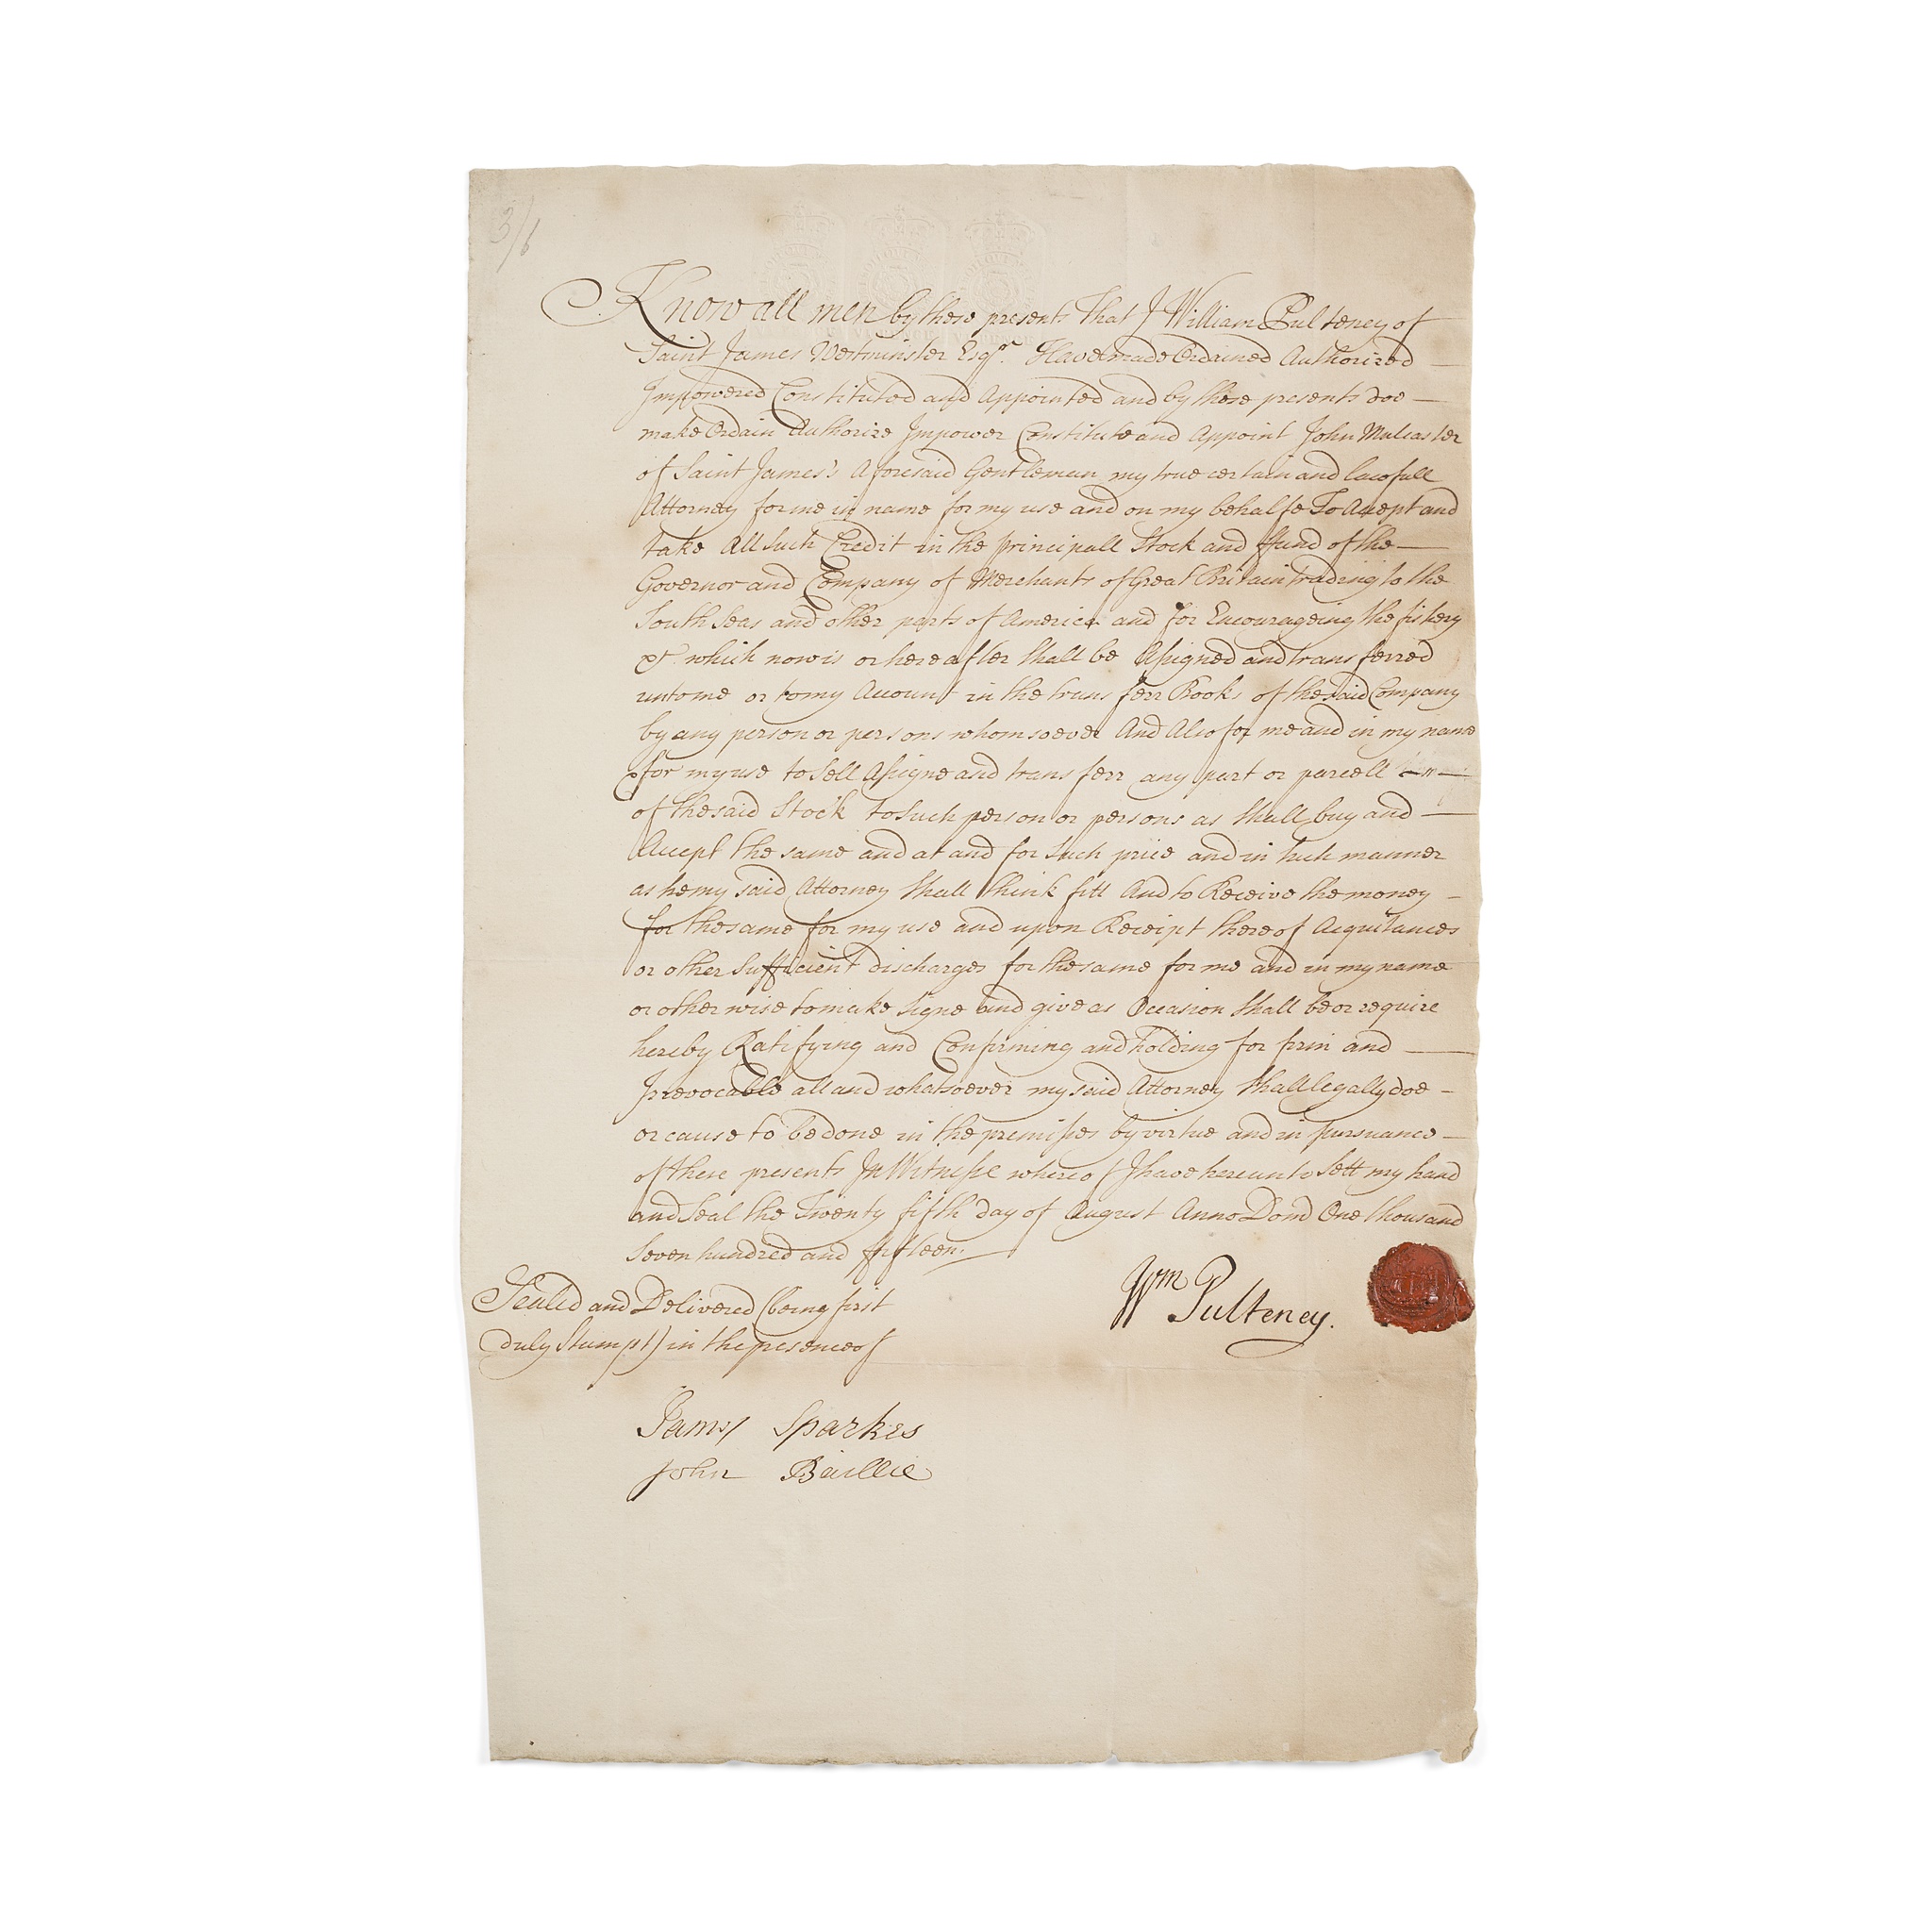 3/6
Know all men by these presents That I William Pulteney of
Saint James Westminster Esqr. Have made Ordained Authorized
Impowered Constituted and Appointed and by these presents doe
make Ordain Authorize Impower Constitute and Appoint John Mulcaster
of Saint James's Aforesaid Gentleman my true certain and lawfull
Attorney for me in name for my use and on my behalfe To Accept and
take All Such Credit in the principall Stock and ffund of the
Governor and Company of Merchants of Great Britain trading to the
South Seas and other parts of America and for Encourageing the fishery
&c which now is or hereafter Shall be Assigned and transferred
unto me or to my Account in the transferr Books of the said Company
by any person or persons whomsoever And Also for me and in my name
& for my use to Sell Assigne and transferr any part or parcell
of the said Stock to Such person or persons as Shall buy and
Accept the same and at and for Such price and in Such manner
as he my said Attorney Shall think fitt And to Receive the money
for the same for my use and upon Receipt thereof Acquitances
or other Sufficient discharges for the same for me and in my name
or otherwise to make Signe and give as Occasion Shall be or require
hereby Ratifying and Confirming and holding for firm and
Irrevocable all and whatsoever my said Attorney Shall legally doe
or cause to be done in the premisses by virtue and in pursuance
of these presents In Witnesse whereof I have hereunto Sett my hand
and Seal the Twenty fifth day of August Anno Domd One thousand
Seven hundred and ffifteen.
Sealed and Delivered (being first
duly Stampt) in the presence of
Wm Pulteney.
James Sparkes
John Baillie